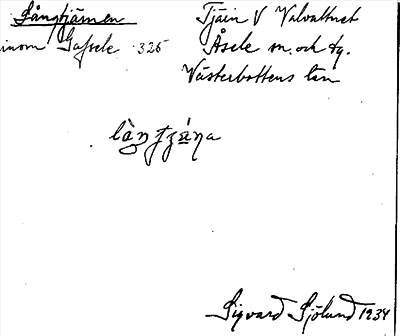 Långtjärnen
Tjärn V Valvattnet
inom Gafsele 325
Åsele sn. och tg.
Västerbottens län
Sigvard Sjölund 1934